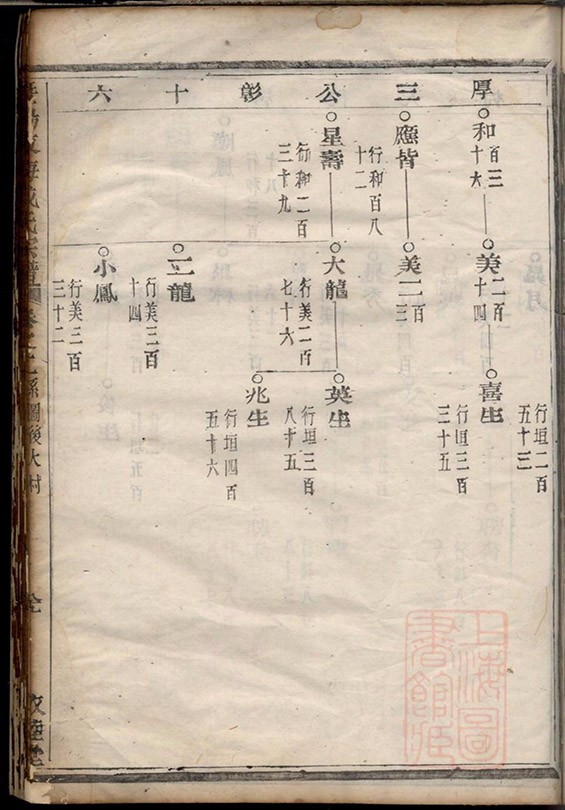 厚三公彰十六
和百三十六
美二百十四
喜生
行垣二百五十三
應皆
行和百八十二
美二百三
行垣三百三十五
星壽
行和二百三十九
大龍
行美二百七十六
英生
行垣三百八十五
兆生
行垣四百五十六
二龍
行美三百十四
小鳳
行美三百三十二
系圖後大村
上海圖書館藏